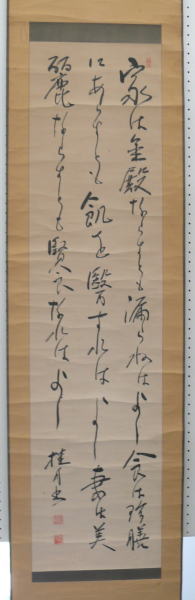 家は金殿ならすとも漏らねはよし食は珍膳
にあらすとも飢を醫すれはよし妻は美
麗ならすとも賢良なれはよし
桂月書